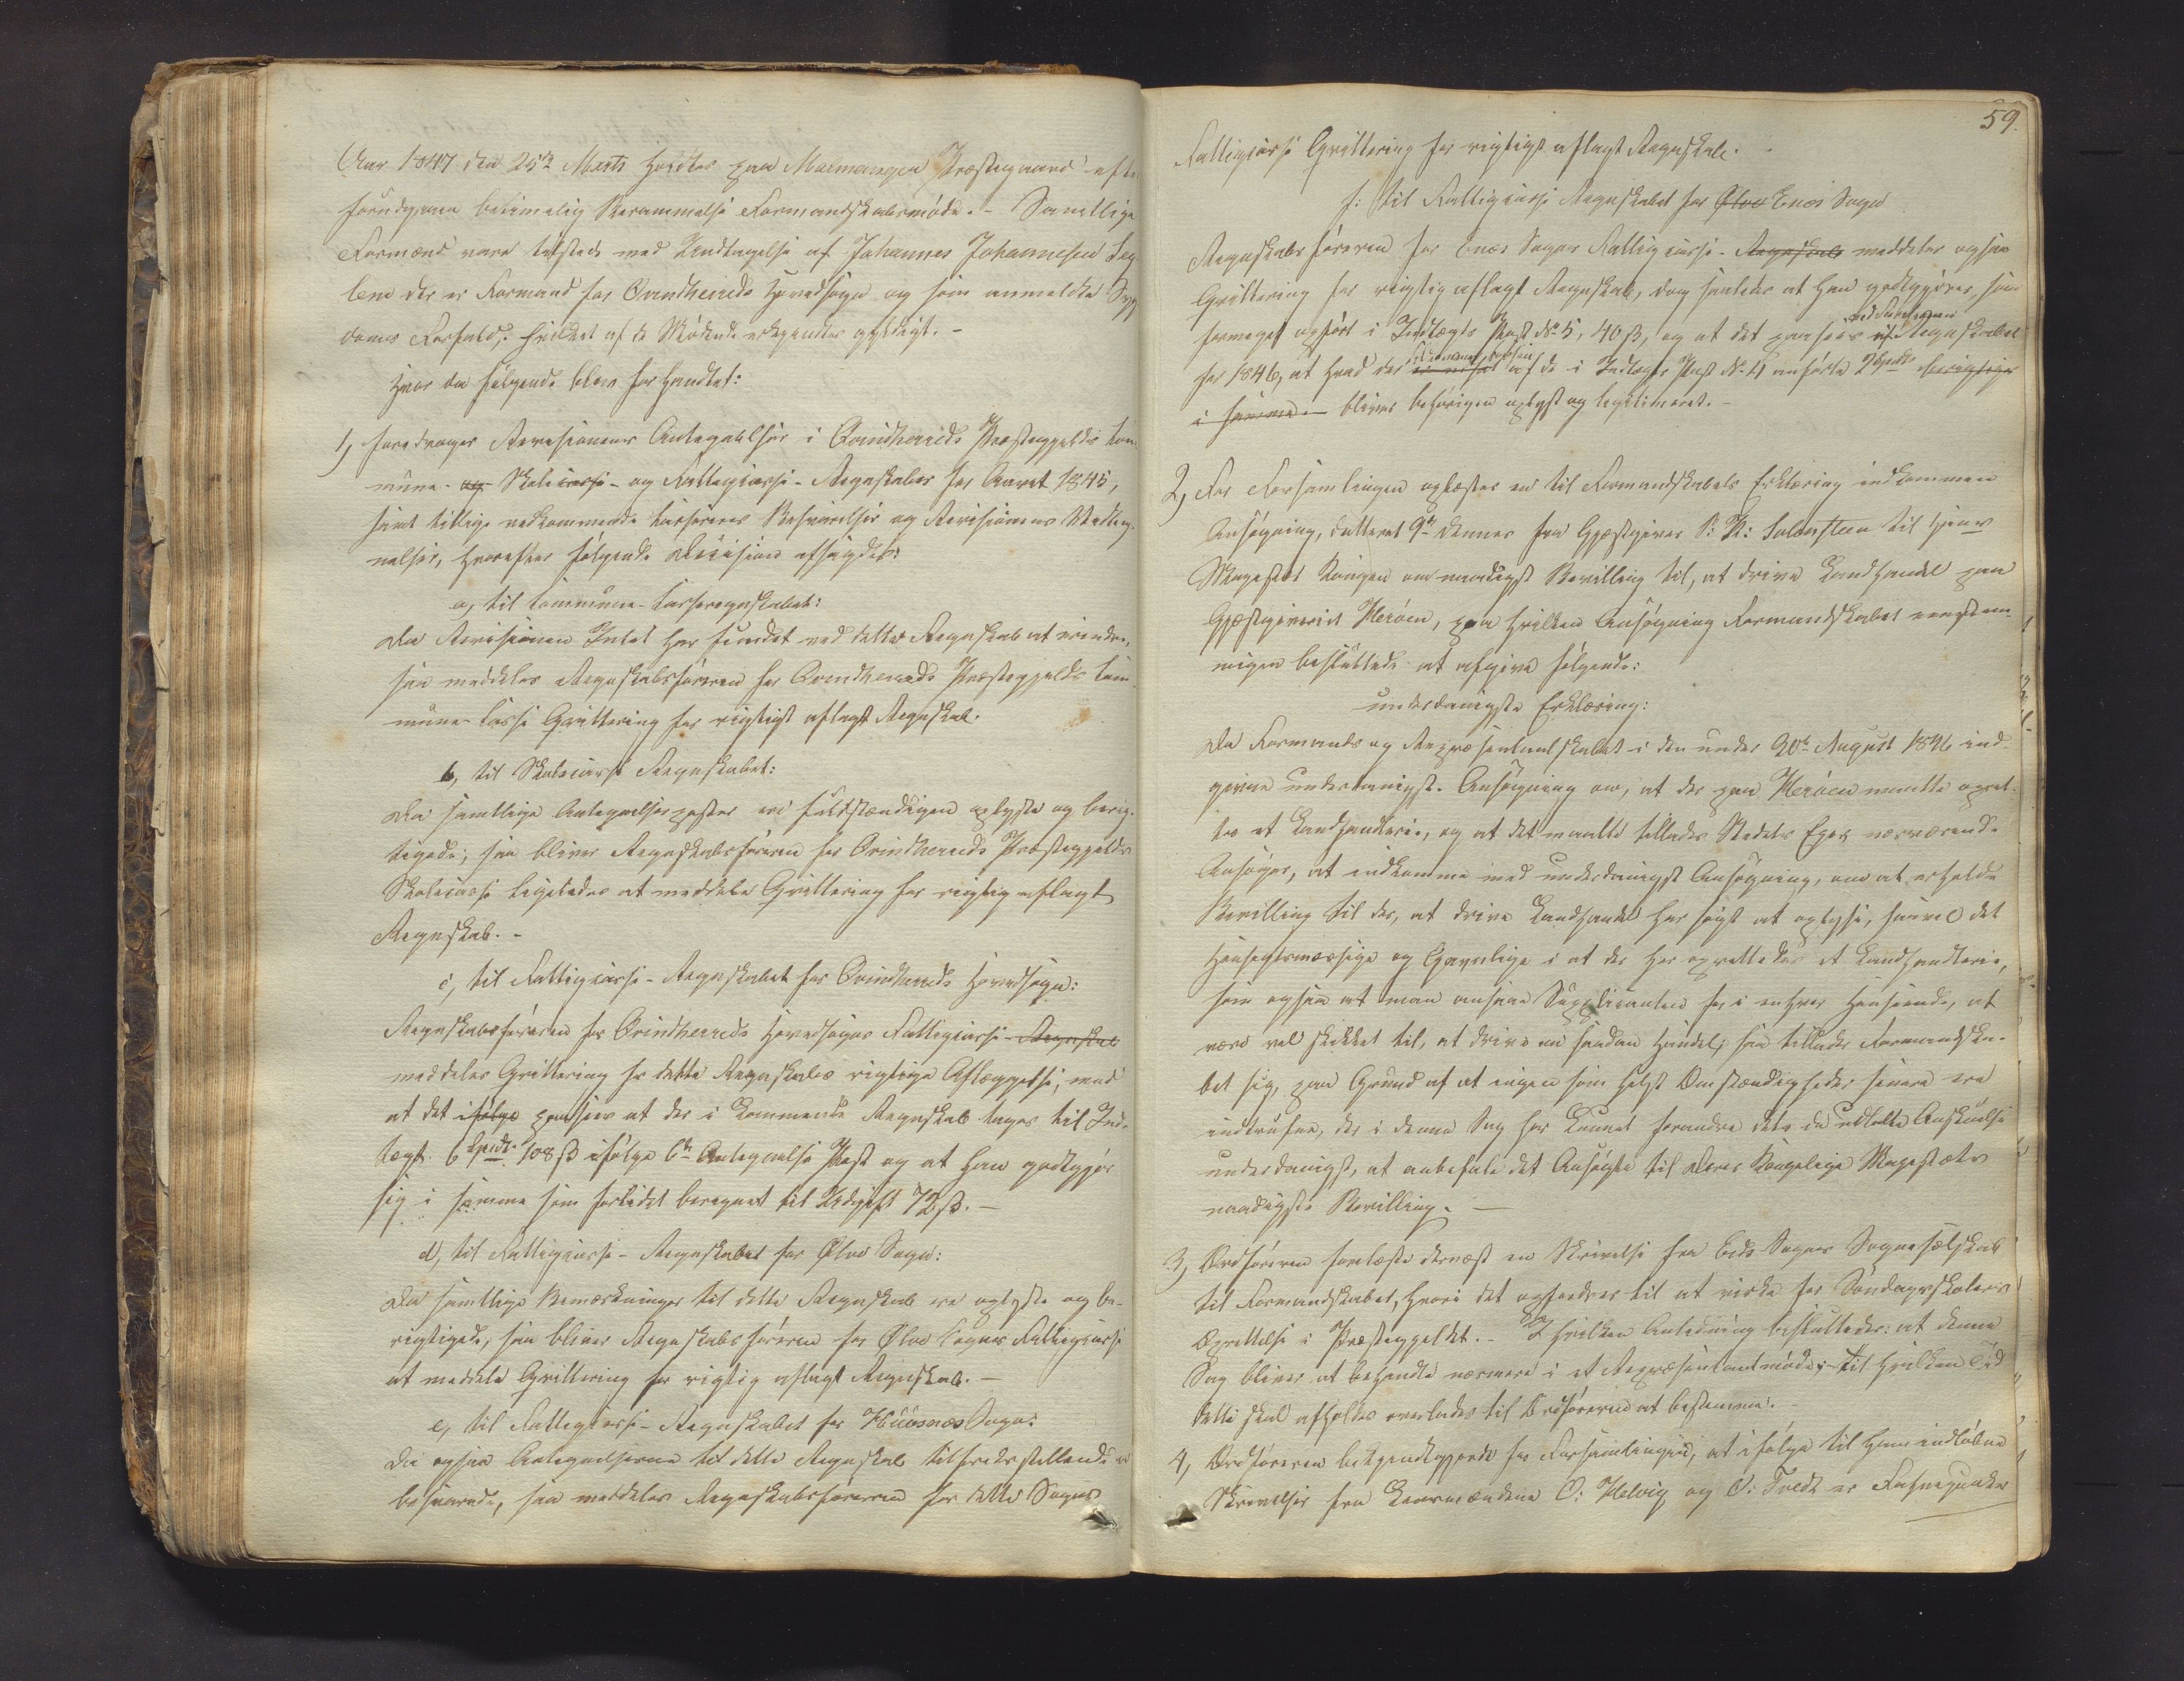 Aar 1847 den 25de Marts holdtes paa Malmanger Præstegaard efter
forudgaaen betimelig Berammelse Formandskabsmøde. - Samtlige
Formænd vare tilstede med Undtagelse af Johannes Johannesen
der er Formand for Qvindherreds Hovedsogn og som anmeldte Syg
doms Forfald, hvilket af de Mødende erkjendtes gyldigt. -
Hvor da følgende blev forhandlet:
1, foredroges Revisionens Antegnelser i Qvindherreds Præstegjelds Com-
mune- og Skolecasse- og Fattigcasse-Regnskaber for Aaret 1845,
samt tillige vedkommende Casserers Besvarelser og Revisionens
nelser, hvorefter følgende Decision afsagdes:
a, til Commune-Casseregnskabet:
Da Revisionen Intet har fundet ved dette Regnskab at erindre,
saa meddeles Regnskabsføreren for Qvindherreds Præstegjelds Com-
mune-Casse Qvittering for rigtigt aflagt Regnskab.
b, til Skolecasse Regnskabet:
Da samtlige Antegnelsesposter ere fuldstændigen oplyste og berig-
tigede, saa bliver Regnskabsføreren for Qvindherreds Præstegjelds
Skolecasse ligeledes at meddele Qvittering for rigtig aflagt
Regnskab. -
c, til Fattigcasse-Regnskabet for Qvindherreds Hovedsogn:
Regnskabsføreren for Qvindherreds Hovedsogns Fattigcasse-Regnskab
meddeles Qvittering for dette Regnskabs rigtige Aflæggelse, mod
at det ifølge paasees at der i kommende Regnskab tages til Ind-
tægt 6 Spd. 108 ß ifølge 6te Antegnelse Post og at han godtgjør
sig i samme som forlidet beregnet til Udgift 72 ß. -
d, til Fattigcasse-Regnskabet for Ølve Sogn:
Da samtlige Bemærkninger til dette Regnskab ere oplyste og be-
rigtigede, saa bliver Regnskabsføreren for Ølve Sogns Fattigcasse
at meddele Qvittering for rigtig aflagt Regnskab. -
e, til Fattigcasse-Regnskabet for Huusnæs Sogn:
Da ogsaa Antegnelserne til dette Regnskab tilfredsstillende er
besvarede, saa meddeles Regnskabsføreren for dette Sogns
59.
Fattigcasse Qvittering for rigtigt aflagt Regnskab. -
f: til Fattigcasse Regnskabet for Ølve Enæs Sogn
Regnskabsføreren for Enæs Sogns Fattigcasse-Regnskab meddeles ogsaa
Qvittering for rigtig aflagt Regnskab, dog saaledes at han godtgjøres, som
formeget opført i Indtægts Post No 5, 40 ß, og at det paasees Regnskabet
for 1846, at hvad der af de i Indtægts Post No 4 anførte 2 Spd
i samme - bliver behørigen oplyst og legitimeret. -
2, For Forsamlingen oplæstes en til Formandskabets Erklæring indkommen
Ansøgning, datteret 9de dennes fra Gjæstgiver til Hans
Majestæt Kongen om naadigst Bevilling til, at drive Landhandel paa
Gjæstgiveriet Herøen, paa hvilken Ansøgning Formandskabet eenstem-
migen besluttede at afgive følgende:
underdanigste Erklæring:
Da Formands og Repræsentantskabet i den under 20de August 1846 ind-
givne underdanigst. Ansøgning om, at der paa Herøen maatte opret-
tes et Landhandlerie, og at det maatte tillades Stedets Eger, nærværende
Ansøger, at indkomme med underdanigst Ansøgning, om at erholde
Bevilling til der, at drive Landhandel har søgt at oplyse, saavel det
Hensigtsmæssige og Gavnlige i at der her oprettedes et Landhandlerie,
som ogsaa at man ansaae Supplicanten for i enhver Henseende, at
være vel skikket til, at drive en saadan Handel, saa tillader Formandska-
bet sig, paa Grund af at ingen som helst Omstændigheder senere ere
indtrufne, der i denne Sag har kunnet forandre dets da udtalte Anskuelse
underdanigst, at anbefale det Ansøgte til Deres Kongelige Majestæts
naadigste Bevilling. -
3, Ordføreren forelæste dernæst en Skrivelse fra Eids Sogns Sogneselskab
til Formandskabet, hvori det opfordres til at virke for Søndagsskolers
Oprettelse i Præstegjeldet. - I hvilken Anledning besluttedes: at denne
Sag bliver at behandle nærmere i et Repræsentantmøde; - til hvilken Tid
dette skal afholdes overlades til Ordføreren at bestemme. -
4, Ordføreren bekjendtgjorde for Forsamlingen, at ifølge til ham indløbne
Skrivelser fra Leensmændene O: Helvig og O: Tvedt er